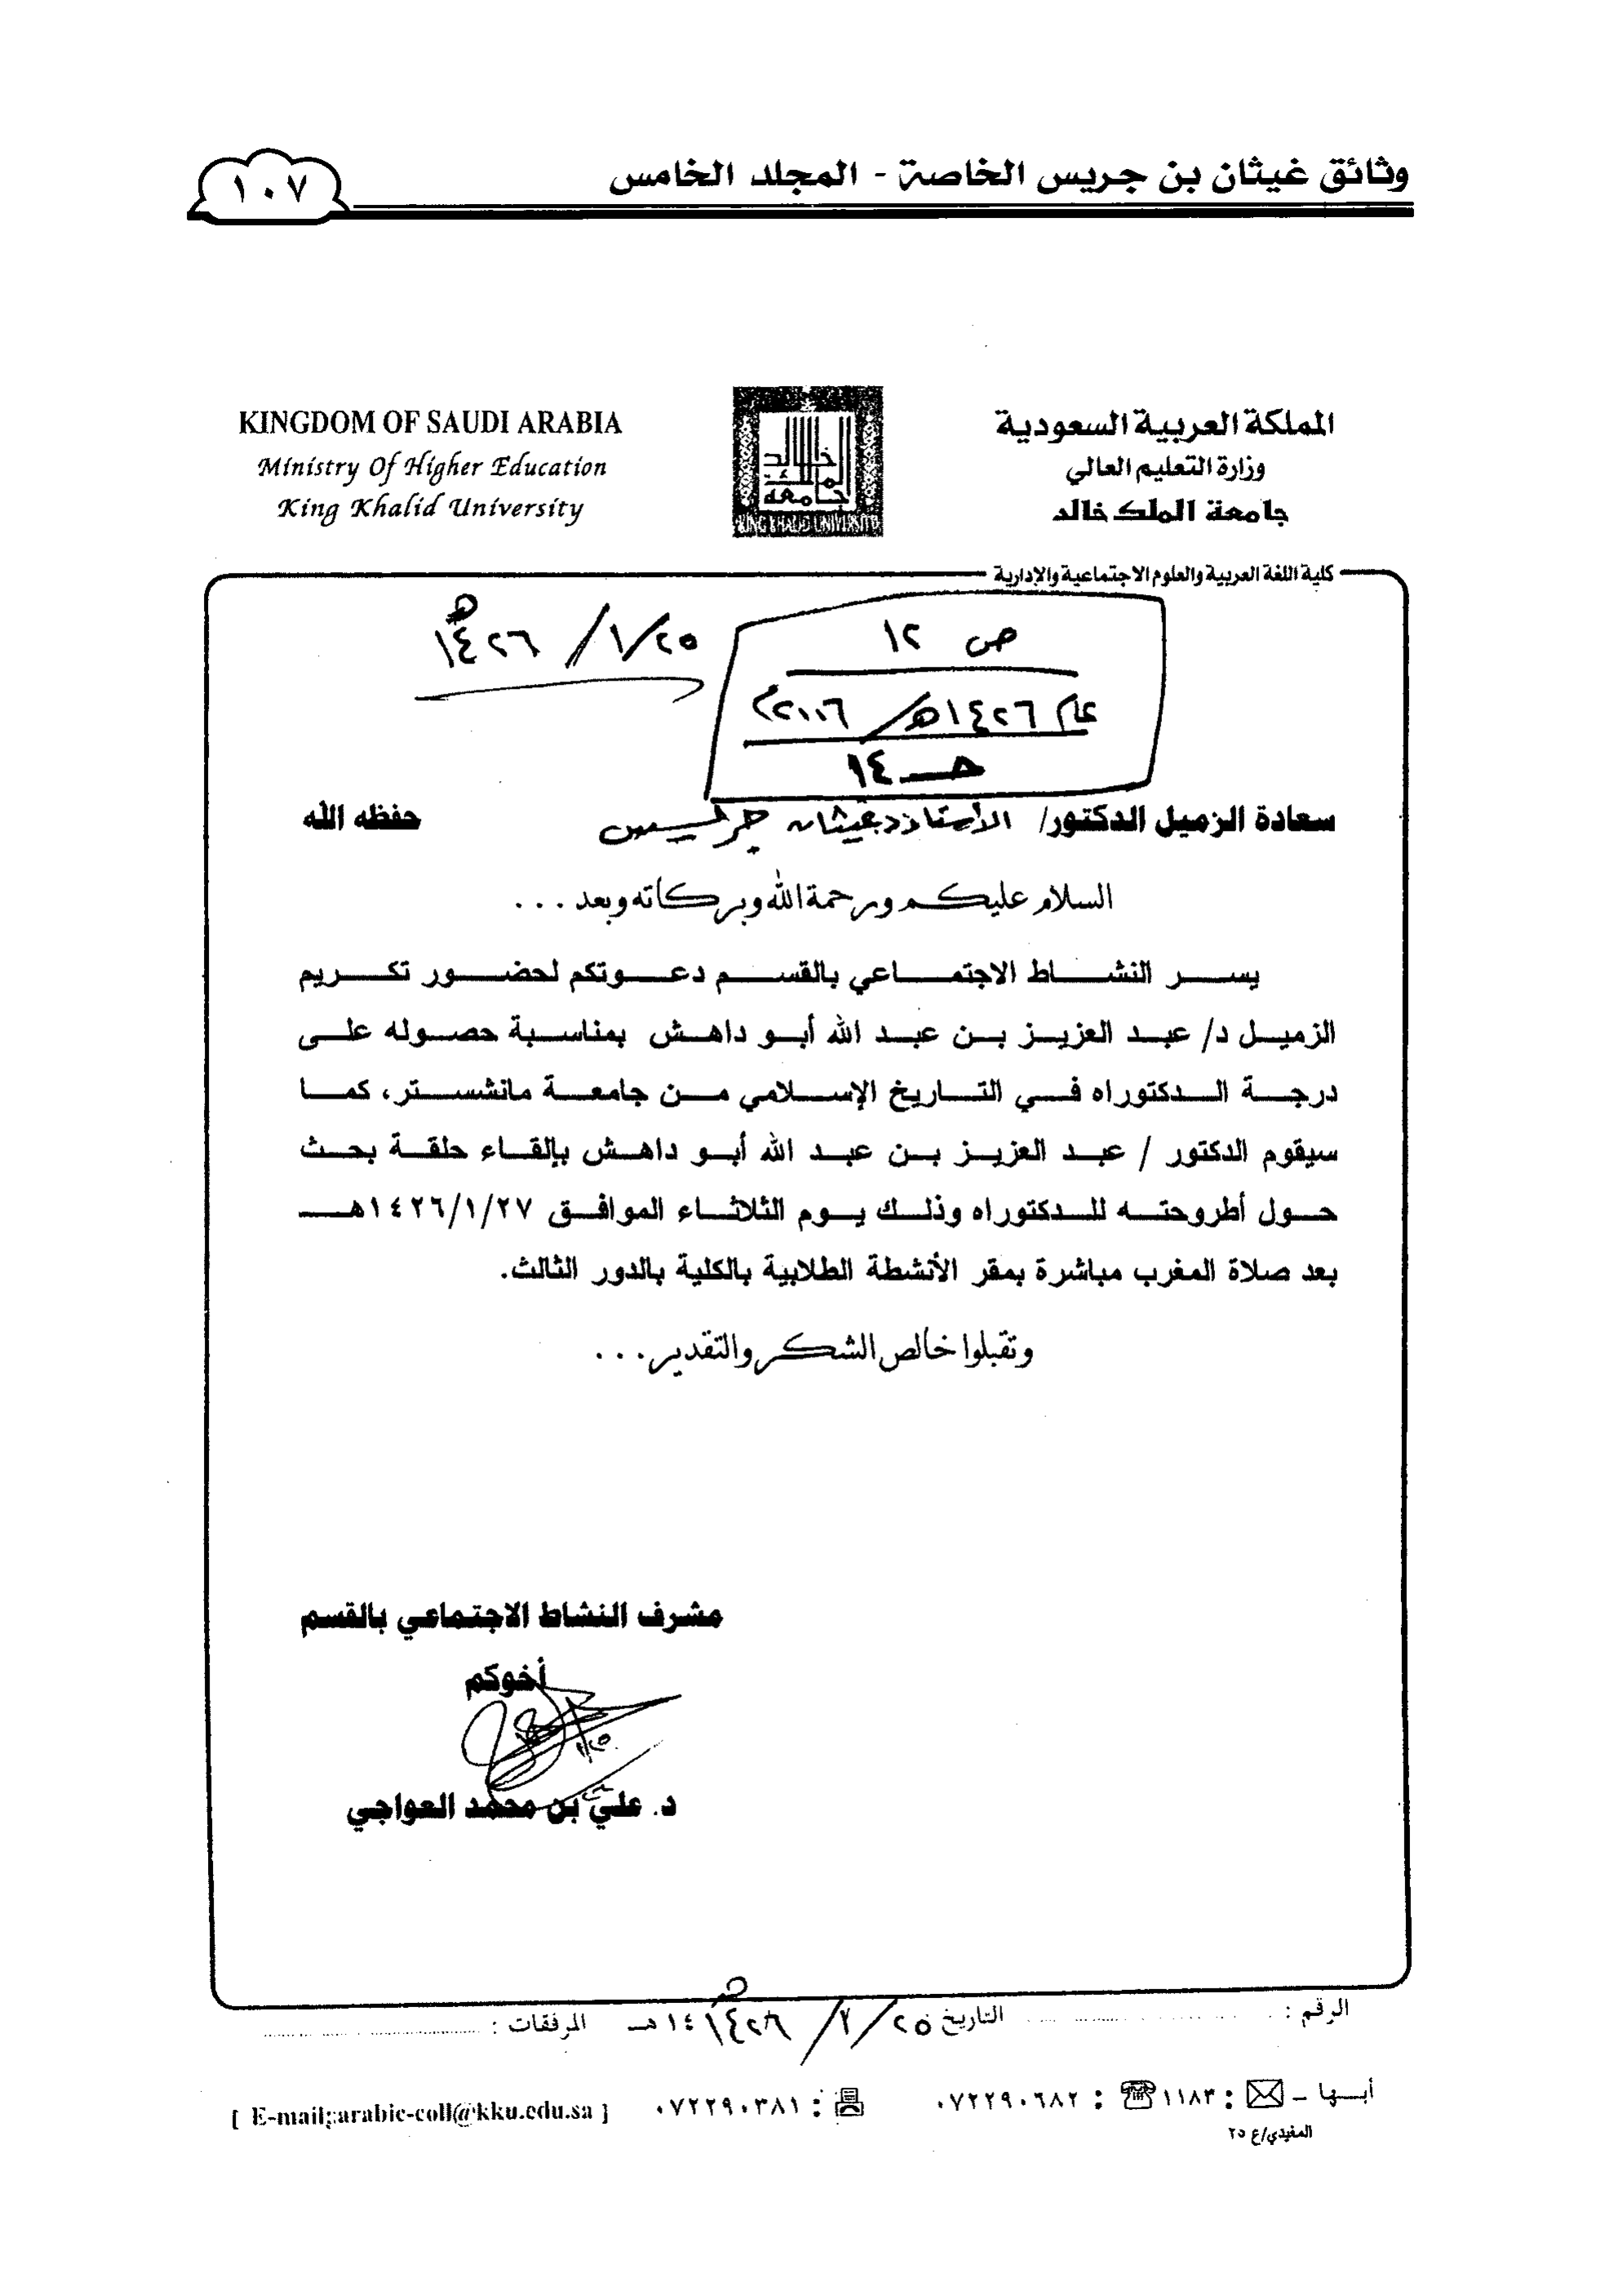 وثائق غيثان بن جريس الخاصة - المجلد الخامس
١٠٧
المملكة العربية السعودية
وزارة التعليم العالي
جامعة الملك خالد
KINGDOM OF SAUDI ARABIA
Ministry Of Higher Education
King Khalid University
جامعة الملك خالد
KING KHALID UNIVERSITY
كلية اللغة العربية والعلوم الاجتماعية والإدارية
ص ١٢
عام ١٤٢٦هـ / ٢٠٠٦م
حـ ١٤
٢٥/١/١٤٢٦هـ
سعادة الزميل الدكتور/ الأستاذ د غيثان جريس حفظه الله
السلام عليكم ورحمة الله وبركاته وبعد ...
يسر النشاط الاجتماعي بالقسم دعوتكم لحضور تكريم
الزميل د/ عبد العزيز بن عبد الله أبو داهش بمناسبة حصوله على
درجة الدكتوراه في التاريخ الإسلامي من جامعة مانشستر، كما
سيقوم الدكتور / عبد العزيز بن عبد الله أبو داهش بإلقاء حلقة بحث
حول أطروحته للدكتوراه وذلك يوم الثلاثاء الموافق ١٤٢٦/١/٢٧هـ
بعد صلاة المغرب مباشرة بمقر الأنشطة الطلابية بالكلية بالدور الثالث.
وتقبلوا خالص الشكر والتقدير ...
مشرف النشاط الاجتماعي بالقسم
أخوكم
د. علي بن محمد العواجي
الرقم : التاريخ ٢٥/٢/١٤٢٦ ١٤هـ المرفقات :
أبها - : ١١٨٣ : ٠٧٢٢٩٠٦٨٢ : ٠٧٢٢٩٠٣٨١ [ E-mail:arabic-coll@kku.edu.sa ]
المفيدي/ع ٢٥